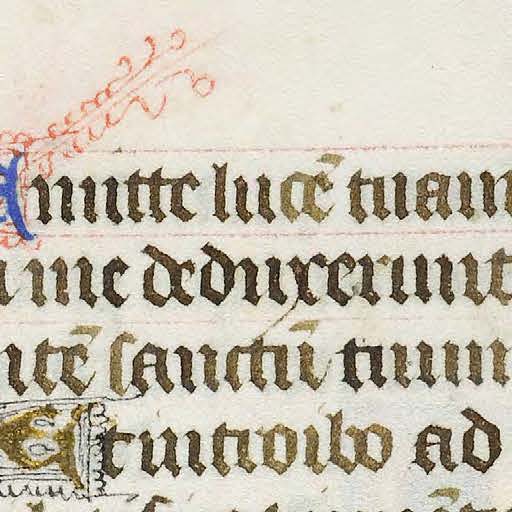 mitte lucē tuam
me deduxerunt
ntē sanctū tuum
Et introibo ad